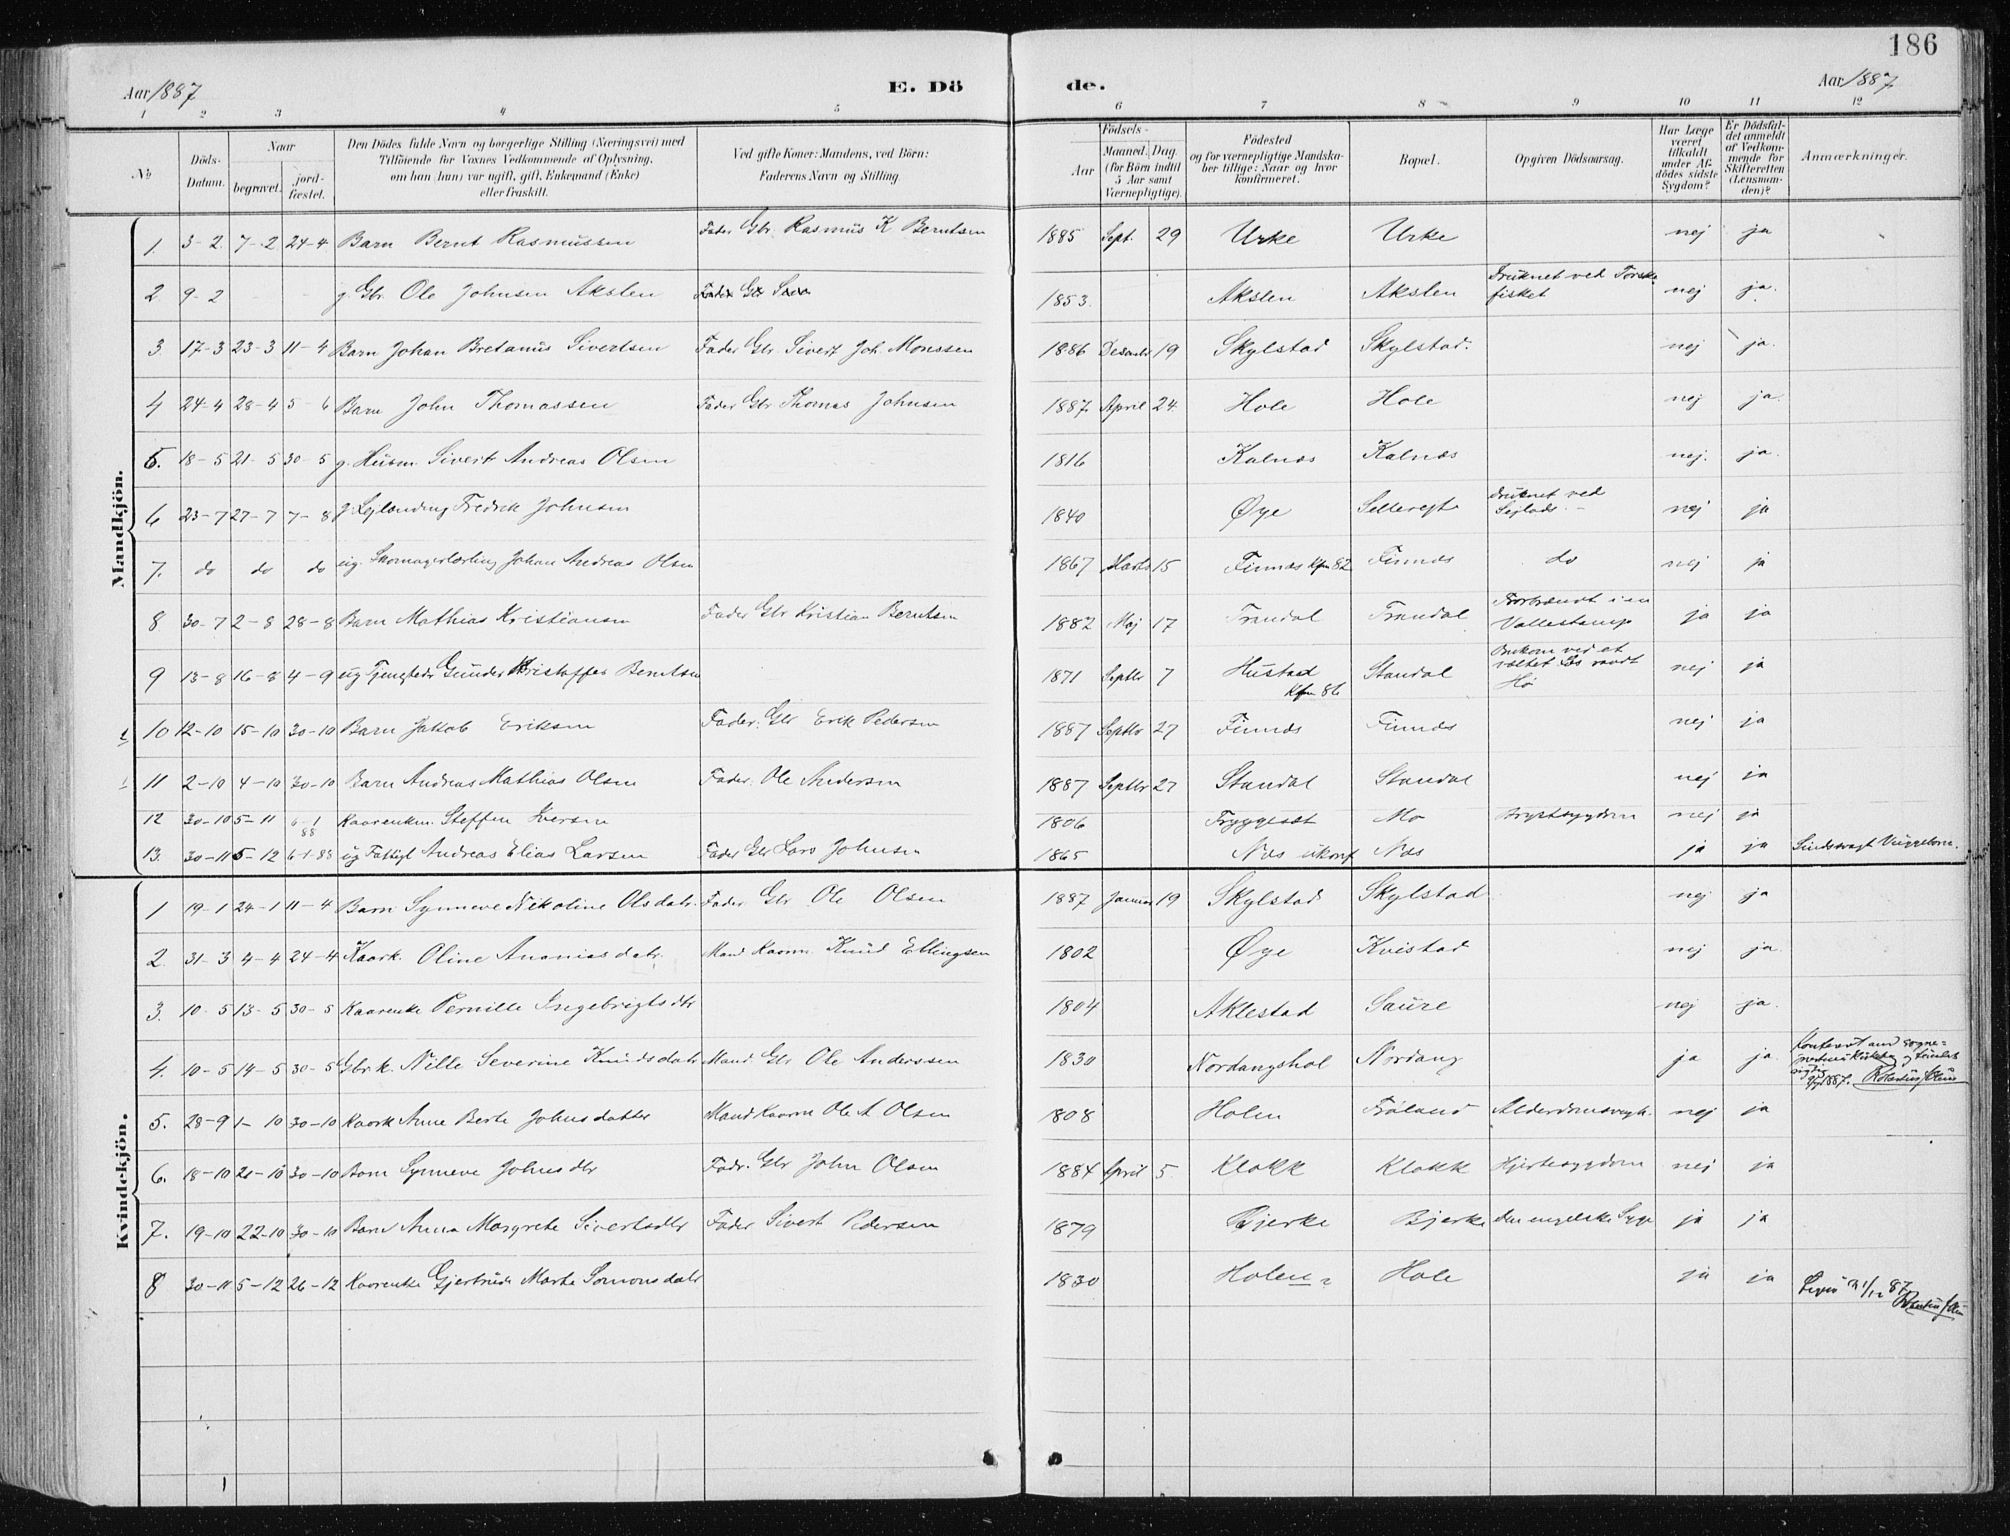 186
Aar 1887 E. Dö de. Aar 1887
1 2 3 4 5 6 7 8 9 10 11 12
No Döds-Datum. Naar begravet. jord-fæstet. Den Dödes fulde Navn og borgerlige Stilling (Næringsvei) med Tilföiende for Voxnes Vedkommende af Oplysning, om han (hun) var ugift, gift, Enkemand (Enke) eller fraskilt. Ved gifte Koner: Mandens, ved Börn: Faderens Navn og Stilling. Födsels- Aar Maaned. Dag. (for Börn indtil 5 Aar samt Værnepligtige). Födested og for værnepligtige Mandskaber tillige: Naar og hvor konfirmeret. Bopæl. Opgiven Dödsaarsag. Har Læge været tilkaldt under Afdödes sidste Sygdom? Er Dödsfaldet anmeldt af Vedkommende for Skifteretten (Lensmanden)? Anmærkninger.
Mandkjön.
1. 3-2 7-2 24-4 Barn Bernt Rasmussen Fader Gbr. Rasmus K Berntsen 1885 Sept. 29 Urke Urke nej ja
2 9-2 g. Gbr. Ole Johnsen Akslen Fader Gbr 1853. Akslen Akslen Druknet ved Torskefisket nej ja.
3 17-3 23-3 11-4 Barn Johan Bretanus Sivertsen Fader Gbr. Sivert Joh. Monssen 1886 Desember 19 Skylstad Skylstad. nej ja.
4 24-4 28-4 5-6 Barn John Thomassen Fader Gbr Thomas Johnsen 1887. April 24. Hole Hole nej ja.
5. 18-5 21-5 30-5 g. Husm. Sivert Andreas Olsen 1816 Kalnæs Kalnæs nej. ja.
6 23-7 27-7 7-8 g. Lejlænding Fredrik Johnsen 1840 Øye Druknet ved Sejlads. nej ja
7. do do do ug. Skomagerlærling Johan Andreas Olsen 1867 Marts 15 Finnæs Kfm 82 Finnæs do nej ja
8 30-7 2-8 28-8 Barn Mathias Kristiansen Fader Gbr Kristian Berntsen 1882 Maj 17 Trandal Trandal Forbrændt i en Vallestamp ja ja
9 13-8 16-8 4-9 ug Tjenestedr Gunder Kristoffer Berntsen 1871 Septbr 7 Hustad Kfm 86 Standal Omkom ved et væltet Læs vaadt Hø nej ja
10 12-10 15-10 30-10 Barn Jakob Eriksen Fader. Gbr Erik Pedersen 1887 Septbr 27 Finnæs Finnæs nej ja
11 2-10 4-10 30-10 Barn Andreas Mathias Olsen Fader. Ole Andersen 1887 Septbr 27 Standal Standal nej ja
12 30-10 5-11 6-1 88 Kaarenkm. Steffen Iversen 1806 Tryggeset Mo Brystsygdom nej ja
13. 30-11 5-12 6-1-88 ug Fattigl Andreas Elias Larsen Fader Gbr Lars Johnsen 1865 Næs ukonf Næs ja ja Sindssvagt Vuggebarn.
Kvindekjön.
1 19-1 24-1 11-4 Barn Synneve Nikoline Olsdatr. Fader Gbr Ole Olsen 1887 Januar 19 Skylstad Skylstad nej ja
2. 31-3 4-4 24-4 Kaark. Oline Ananiasdatr. Mand Kaarm. Knud Ellingsen 1802 Øye Kvistad nej ja.
3. 10-5 13-5 30-5 Kaarenke Pernille Ingebrigtsdtr 1804 Aklestad Saure nej ja.
4. 10-5 14-5 30-5 Gbr.k. Nille Severine Knudsdatr Mand. Gbr Ole Anderssen 1830 Nordangshol Nordang ja ja
5. 28-9 1-10 30-10 Kaark Anne Berte Johnsdatter Mand Kaarm Ole A Olsen 1808 Holen Frøland Alderdomssvagh. nej ja
6. 18-10 21-10 30-10 Barn Synneve Johnsdtr Fadr. Gbr John Olsen 1884 April 5. Klokk Klokk Hjertesygdom nej ja
7. 19-10 22-10 30-10 Barn Anna Margrete Sivertsdtr Fader Sivert Pedersen 1879 Bjerke Bjerke den engelske Syge ja ja
8 30-11 5-12 26-12 Kaarenke Gjertrude Marte Somonsdatr 1830 Holen Hole ja ja 31/12 87